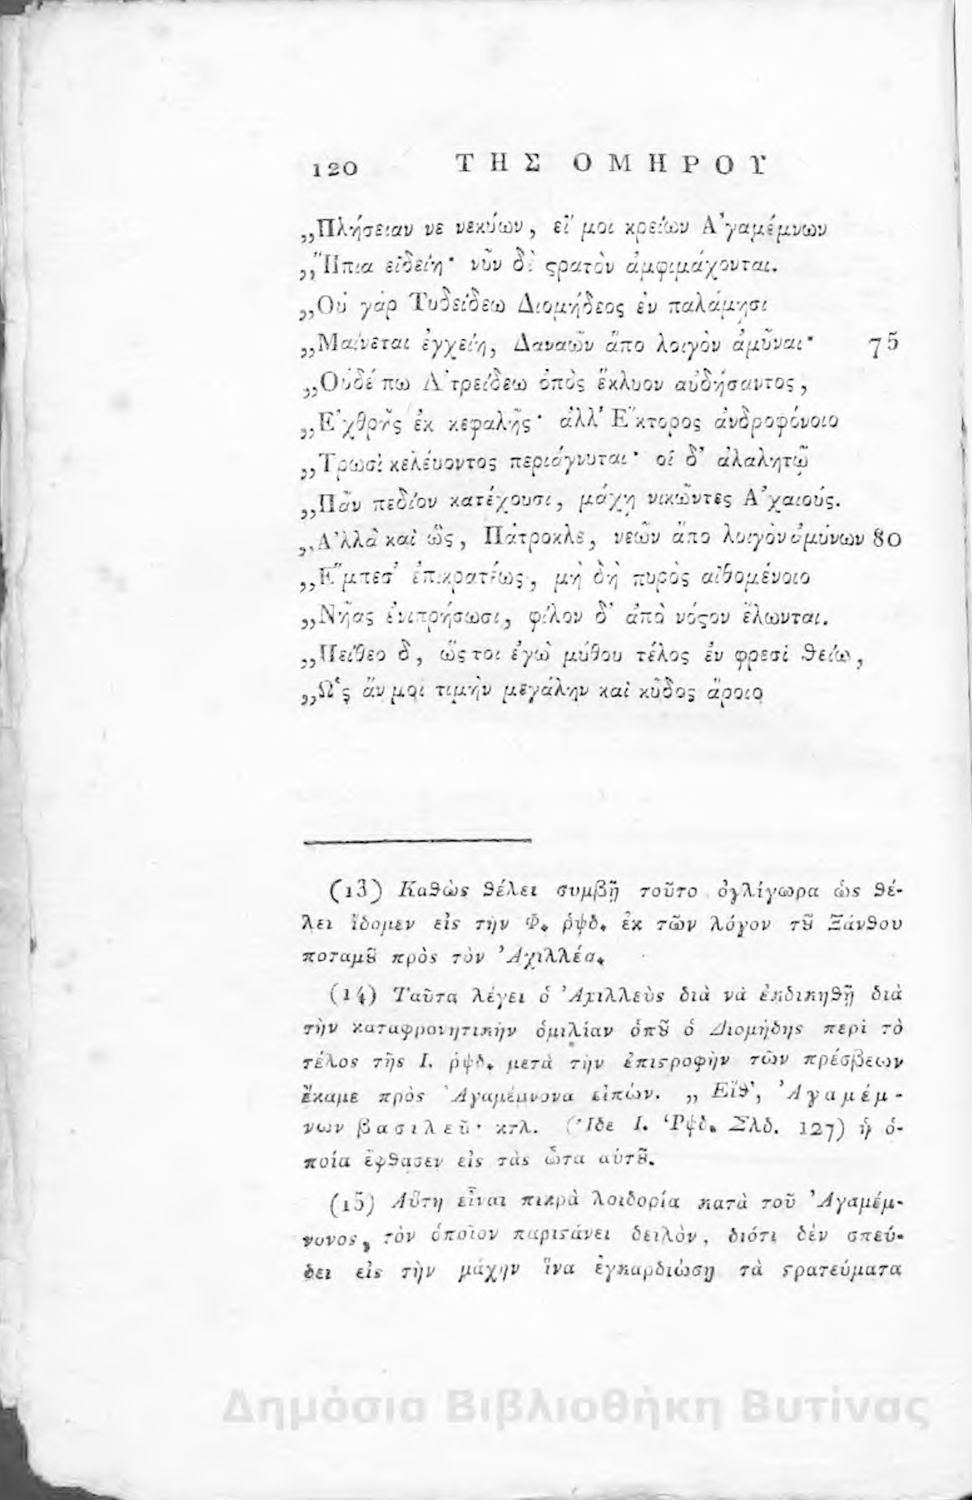 120 ΤΗΣ ΟΜΗΡΟΥ
„Πλήσειαν νε νεκύων, εἴ μοι κρείων Ἀγαμέμνων
„Ἤπια εἰδείη· νῦν δὲ ϛρατὸν ἀμφιμάχονται.
„Οὐ γὰρ Τυδείδεω Διομήδεος ἐν παλάμῃσι
„Μαίνεται ἐγχείη, Δαναῶν ἄπο λοιγὸν ἀμῦναι· 75
„Οὐδέ πω Ἀτρείδεω ὀπὸς ἔκλυον αὐδήσαντος,
„Ἐχθρῆς ἐκ κεφαλῆς· ἀλλ' Ἕκτορος ἀνδροφόνοιο
„Τρωσὶ κελέυοντος περιάγνυται· οἱ δ' ἀλαλητῷ
„Πᾶν πεδίον κατέχουσι, μάχῃ νικῶντες Ἀχαιούς.
„Ἀλλὰ καὶ ὣς, Πάτροκλε, νεῶν ἄπο λοιγὸν ἀμύνων 80
„Ἔμπεσ' ἐπικρατέως, μὴ δὴ πυρὸς αἰθομένοιο
„Νῆας ἐνιπρήσωσι, φίλον δ' ἀπὸ νόϛον ἕλωνται.
„Πείθεο δ, ὥς τοι ἐγὼ μύθου τέλος ἐν φρεσὶ θείω,
„Ὡς ἄν μοι τιμὴν μεγάλην καὶ κῦδος ἄροιο
(13) Καθὼς θέλει συμβῇ τοῦτο ὀγλίγωρα ὡς θέ-
λει ἴδομεν εἰς τὴν Φ. ῥψδ. ἐκ τῶν λόγον τȣ͂ Ξάνθου
ποταμȣ͂ πρὸς τὸν Ἀχιλλέα.
(14) Ταῦτα λέγει ὁ Ἀχιλλεὺς διὰ νὰ ἐκδικηθῇ διὰ
τὴν καταφρονητικὴν ὁμιλίαν ὁπȣ͂ ὁ Διομήδης περὶ τὸ
τέλος τῆς Ι. ῥψδ. μετὰ τὴν ἐπιϛροφὴν τῶν πρέσβεων
ἔκαμε πρὸς Ἀγαμέμνονα εἰπών. „ Εἴθ', Ἀγαμέμ-
νων βασιλεῦ· κτλ. (Ἴδε Ι. Ῥψδ. Σλδ. 127) ἡ ὁ-
ποία ἔφθασεν εἰς τὰς ὦτα αὐτȣ͂.
(15) Αὕτη εἶναι πικρὰ λοιδορία κατὰ τοῦ Ἀγαμέμ-
νονος, τὸν ὁποῖον παριϛάνει δειλὸν, διότι δὲν σπεύ-
δει εἰς τὴν μάχην ἵνα ἐγκαρδιώσῃ τὰ ϛρατεύματα
Δημόσια Βιβλιοθήκη Βυτίνας